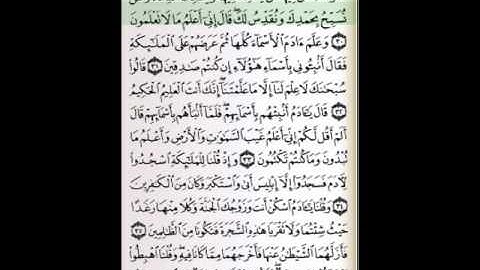 نُسَبِّحُ بِحَمْدِكَ وَنُقَدِّسُ لَكَ ۖ قَالَ إِنِّي أَعْلَمُ مَا لَا تَعْلَمُونَ
﴿٣٠﴾ وَعَلَّمَ ءَادَمَ ٱلْأَسْمَآءَ كُلَّهَا ثُمَّ عَرَضَهُمْ عَلَى ٱلْمَلَـٰٓئِكَةِ
فَقَالَ أَنۢبِـُٔونِى بِأَسْمَآءِ هَـٰٓؤُلَآءِ إِن كُنتُمْ صَـٰدِقِينَ ﴿٣١﴾ قَالُوا۟
سُبْحَـٰنَكَ لَا عِلْمَ لَنَآ إِلَّا مَا عَلَّمْتَنَآ ۖ إِنَّكَ أَنتَ ٱلْعَلِيمُ ٱلْحَكِيمُ
﴿٣٢﴾ قَالَ يَـٰٓـَٔادَمُ أَنۢبِئْهُم بِأَسْمَآئِهِمْ ۖ فَلَمَّآ أَنۢبَأَهُم بِأَسْمَآئِهِمْ قَالَ
أَلَمْ أَقُل لَّكُمْ إِنِّىٓ أَعْلَمُ غَيْبَ ٱلسَّمَـٰوَٰتِ وَٱلْأَرْضِ وَأَعْلَمُ مَا
تُبْدُونَ وَمَا كُنتُمْ تَكْتُمُونَ ﴿٣٣﴾ وَإِذْ قُلْنَا لِلْمَلَـٰٓئِكَةِ ٱسْجُدُوا۟
لِـَٔادَمَ فَسَجَدُوٓا۟ إِلَّآ إِبْلِيسَ أَبَىٰ وَٱسْتَكْبَرَ وَكَانَ مِنَ ٱلْكَـٰفِرِينَ
﴿٣٤﴾ وَقُلْنَا يَـٰٓـَٔادَمُ ٱسْكُنْ أَنتَ وَزَوْجُكَ ٱلْجَنَّةَ وَكُلَا مِنْهَا رَغَدًا
حَيْثُ شِئْتُمَا وَلَا تَقْرَبَا هَـٰذِهِ ٱلشَّجَرَةَ فَتَكُونَا مِنَ ٱلظَّـٰلِمِينَ ﴿٣٥﴾
فَأَزَلَّهُمَا ٱلشَّيْطَـٰنُ عَنْهَا فَأَخْرَجَهُمَا مِمَّا كَانَا فِيهِ ۖ وَقُلْنَا ٱهْبِطُوا۟